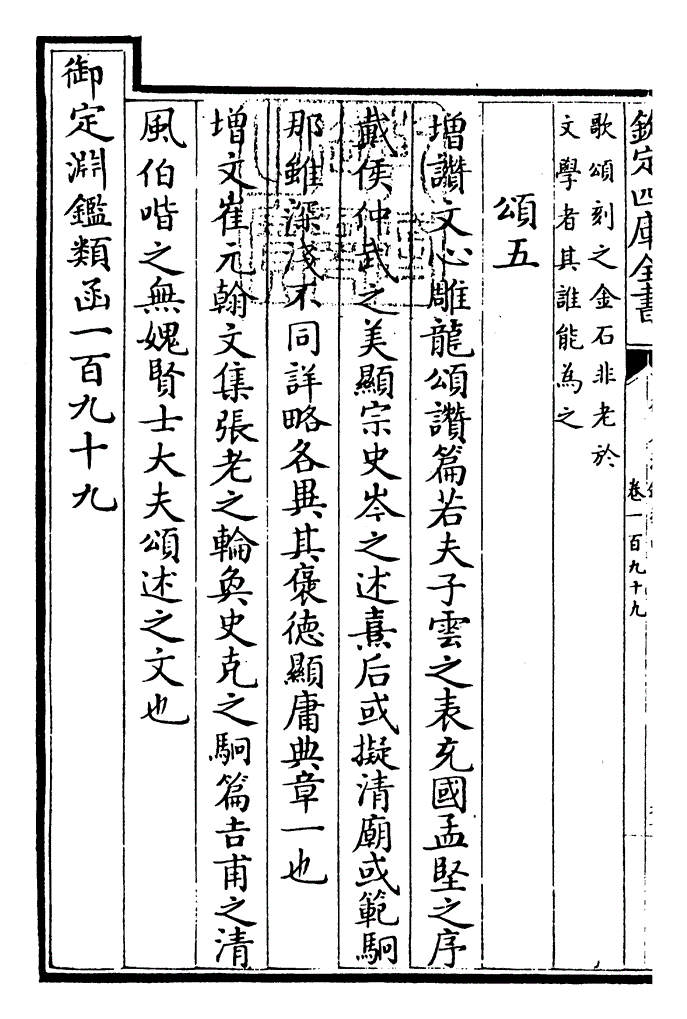 欽定四庫全書
卷一百九十九
歌頌刻之金石非老於
文學者其誰能為之
頌五
增讚文心雕龍頌讚篇若夫子雲之表充國孟堅之序
戴侯仲武之美顯宗史岑之述熹后或擬清廟或範駉
那雖深淺不同詳略各異其褒德顯庸典章一也
增文崔元翰文集張老之輪奐史克之駉篇吉甫之清
風伯喈之無媿賢士大夫頌述之文也
御定淵鑑類函一百九十九